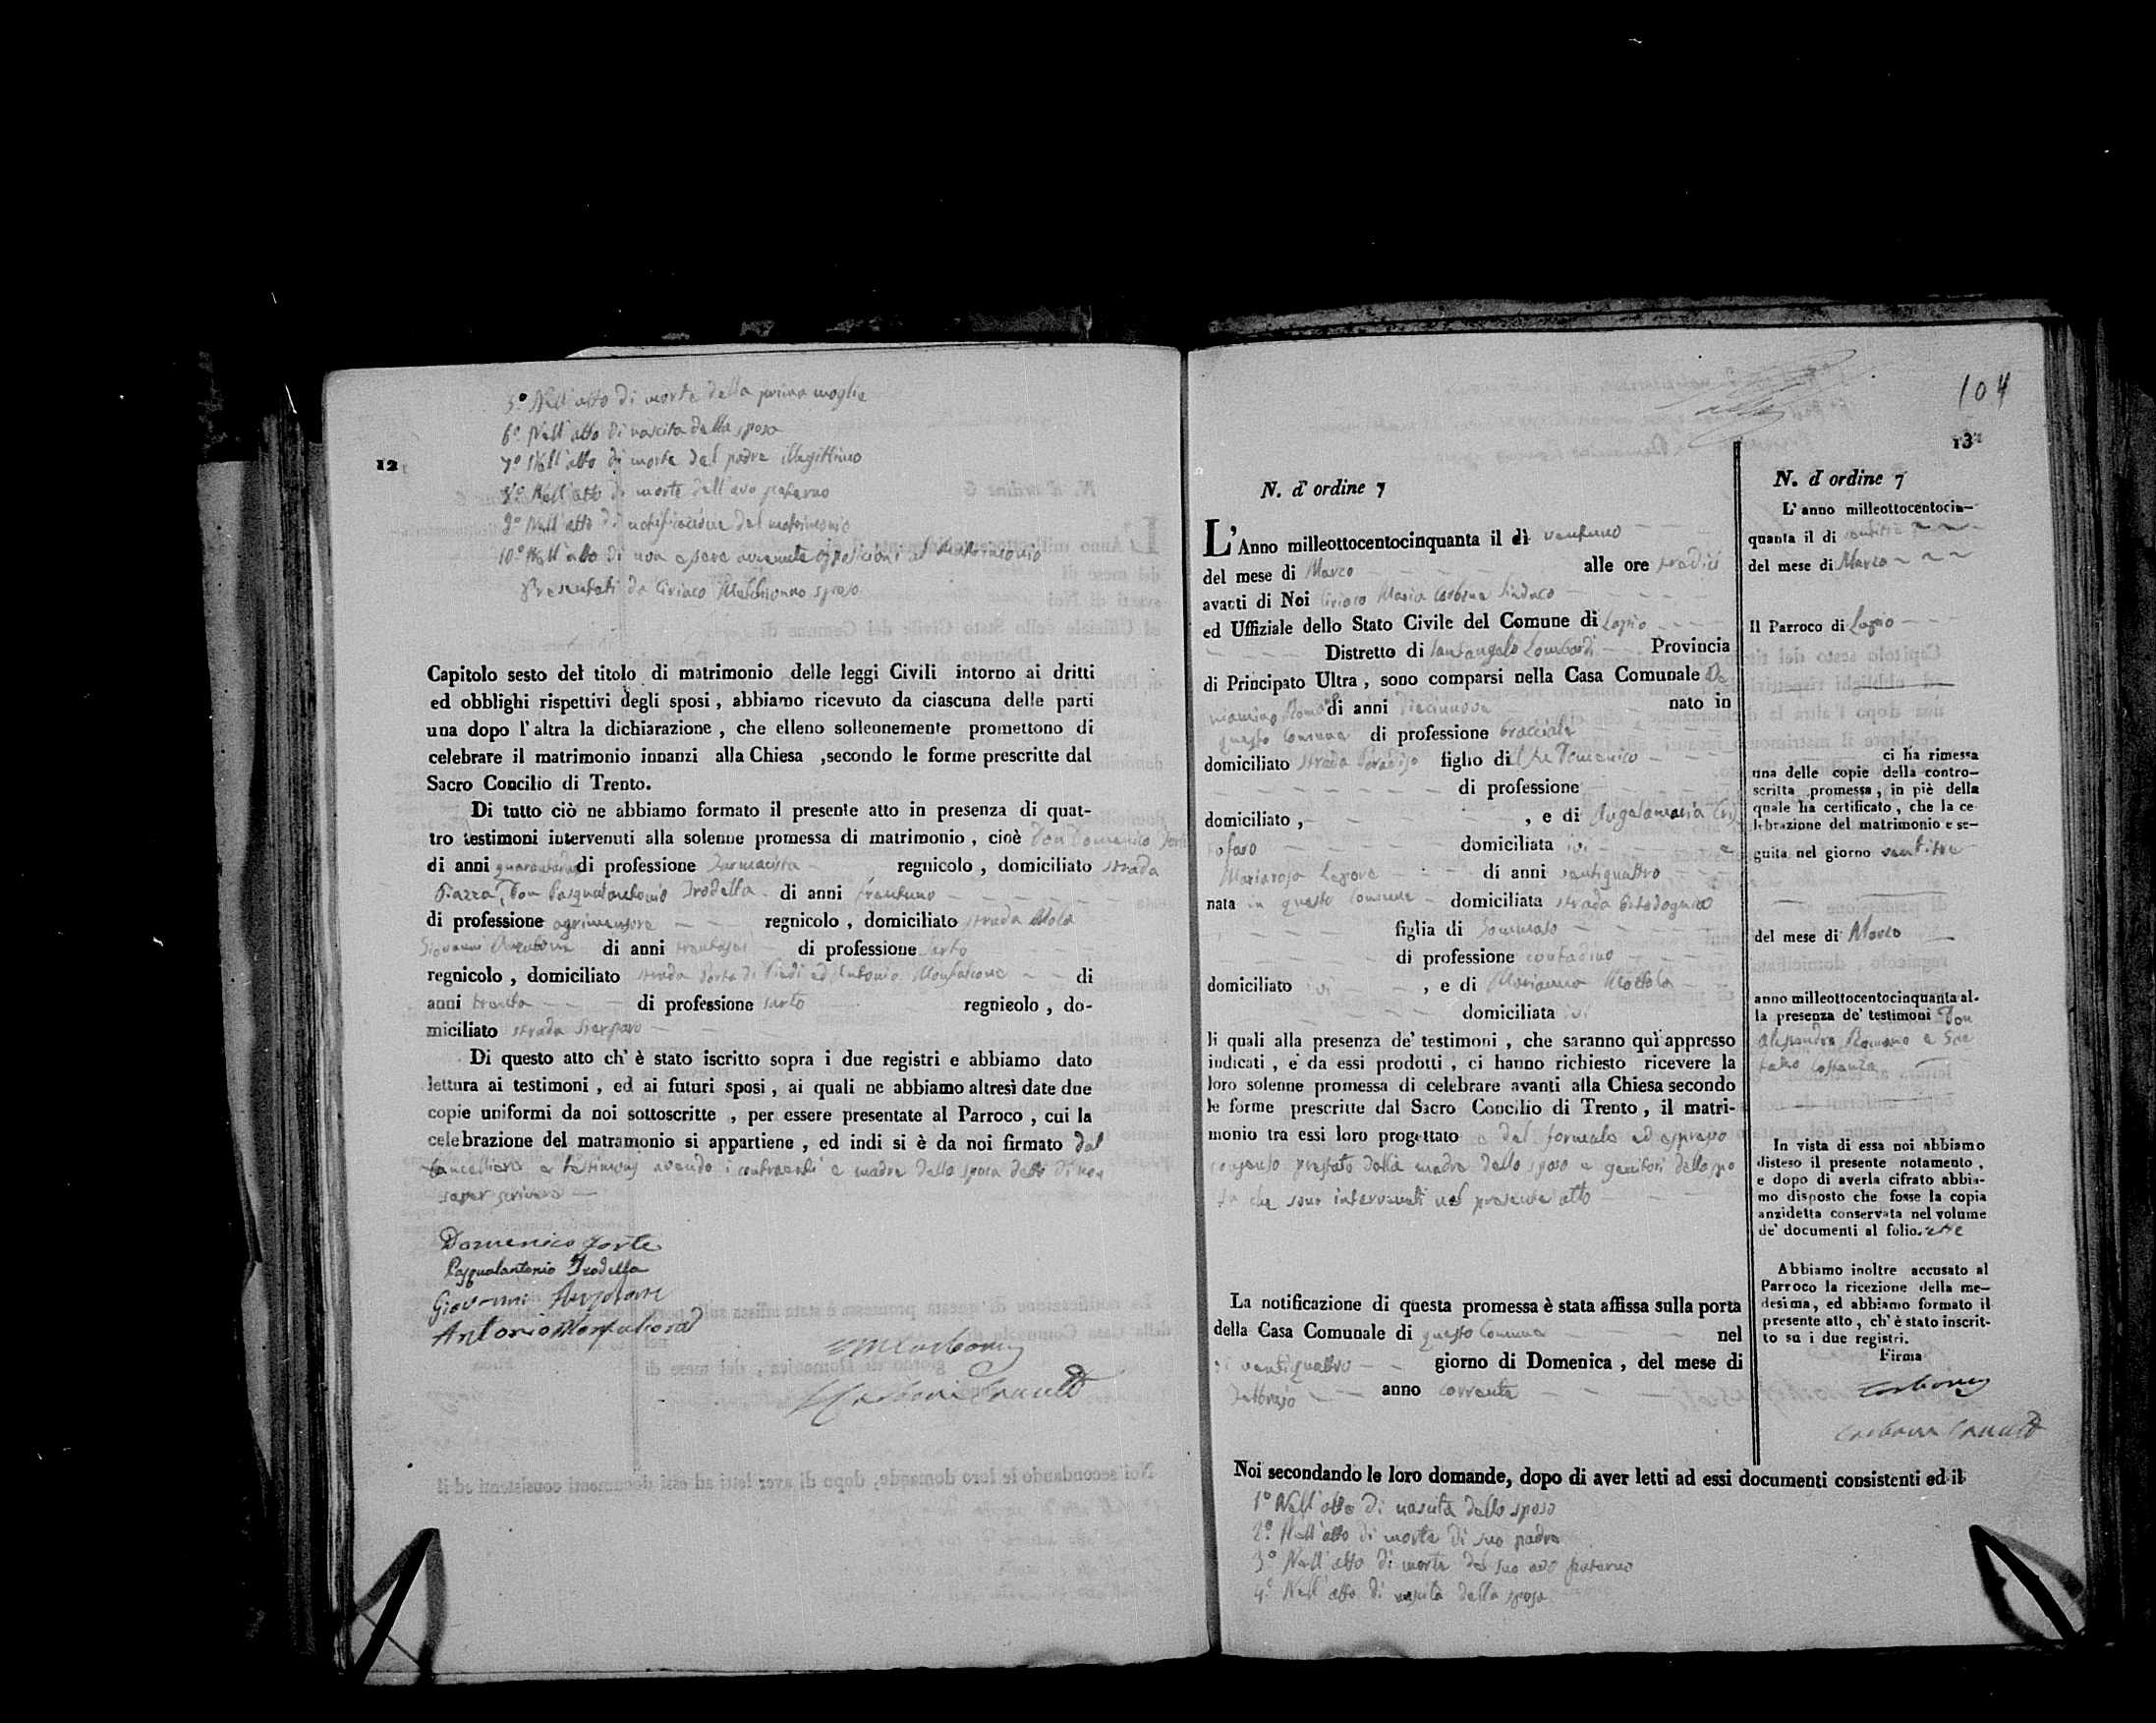 12
5.º Nell'atto di morte della prima moglie
6º Nell'atto di nascita della sposa
7º Nell'atto di morte del padre illegittimo
8º Nell'atto di morte dell'avo paterno
9º Nell'atto di notificazione del matrimonio
10º Nell'atto di non essere avvenute opposizioni al matrimonio
Presentati da Ciriaco sposo
Capitolo sesto del titolo di matrimonio delle leggi Civili intorno ai dritti
ed obblighi rispettivi degli sposi , abbiamo ricevuto da ciascuna delle parti
una dopo l'altra la dichiarazione , che elleno sollennemente promettono di
celebrare il matrimonio innanzi alla Chiesa , secondo le forme prescritte dal
Sacro Concilio di Trento.
Di tutto ciò ne abbiamo formato il presente atto in presenza di quat-
tro testimoni intervenuti alla solenne promessa di matrimonio , cioè Don Domenico Forte
di anni di professione Farmacista regnicolo , domiciliato strada
Piazza, Don Pasqualantonio Trodella di anni trentuno
di professione agrimensore regnicolo , domiciliato strada
Giovanni di anni trentasei di professione sarto
regnicolo , domiciliato strada Porta di Piedi ed Antonio di
anni trenta di professione sarto regnicolo , do-
miciliato strada
Di questo atto ch' è stato iscritto sopra i due registri e abbiamo dato
lettura ai testimoni , ed ai futuri sposi , ai quali ne abbiamo altresì date due
copie uniformi da noi sottoscritte , per essere presentate al Parroco , cui la
celebrazione del matramonio si appartiene , ed indi si è da noi firmato dal
Cancelliere e testimonj avendo i contraenti e madre dello sposa detto di non
saper scrivere
Domenico Forte
Pasqualantonio Trodella
Giovanni
Antonio
104
13
N. d' ordine 7
L'Anno milleottocentocinquanta il dì ventuno
del mese di Marzo alle ore tredici
avanti di Noi Ciriaco Maria Carbone Sindaco
ed Uffiziale dello Stato Civile del Comune di Lapio
Distretto di Santangelo Lombardi Provincia
di Principato Ultra , sono comparsi nella Casa Comunale Be
niamino Romano di anni diecinnove nato in
questo Comune di professione bracciale
domiciliato strada Paradiso figlio di Domenico
di professione
domiciliato , , e di Angelamaria Cri
stofaro domiciliata ivi e
Mariarosa di anni ventiquattro
nata in questo Comune domiciliata strada
figlia di Tommaso
di professione contadino
domiciliato ivi , e di Marianna Mottola
domiciliata ivi
li quali alla presenza de' testimoni , che saranno quì appresso
indicati , e da essi prodotti , ci hanno richiesto ricevere la
loro solenne promessa di celebrare avanti alla Chiesa secondo
le forme prescritte dal Sacro Concilio di Trento , il matri-
monio tra essi loro progettato e del formale ed espresso
consenso prestato dalla madre dello sposo e genitori della spo
sa che sono intervenuti nel presente atto
La notificazione di questa promessa è stata affissa sulla porta
della Casa Comunale di questo Comune nel
dì ventiquattro giorno di Domenica , del mese di
Febbraio anno corrente
Noi secondando le loro domande, dopo di aver letti ad essi documenti consistenti ed il
1º Nell'atto di nascita dello sposo
2º Nell'atto di morte di suo padre
3º Nell'atto di morte del suo avo paterno
4º Nell'atto di nascita della sposa
N. d ordine 7
L' anno milleottocentocin-
quanta il di ventitrè
del mese di Marzo
Il Parroco di Lapio
ci ha rimessa
una delle copie della contro-
scritta promessa , in piè della
quale ha certificato , che la ce-
lebrazione del matrimonio e se-
guita nel giorno ventitre
del mese di Marzo
anno milleottocentocinquanta al-
la presenza de' testimoni Don
Alessandro Romano e Gae
tano Costanza
In vista di essa noi abbiamo
disteso il presente notamento ,
e dopo di averla cifrato abbia-
mo disposto che fosse la copia
anzidetta conservata nel volume
de' documenti al folio.
Abbiamo inoltre accusato al
Parroco la ricezione della me-
desima, ed abbiamo formato il
presente atto , ch' è stato inscrit-
to su i due registri.
Firma
Carbone